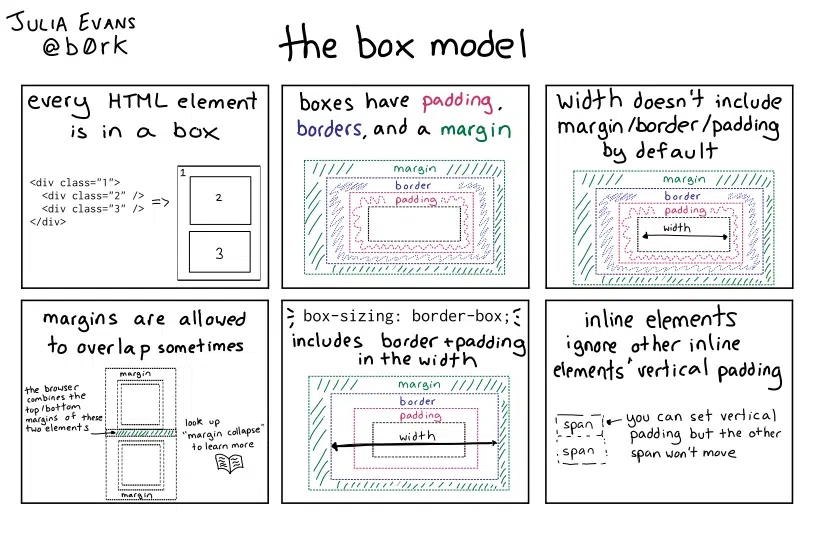 JULIA EVANS
@b0rk
the box model
every HTML element
is in a box
<div class="1">
<div class="2" />
<div class="3" />
</div>
=>
1
2
3
boxes have padding,
borders, and a margin
margin
border
padding
width doesn't include
margin/border/padding
by default
margin
border
padding
width
margins are allowed
to overlap sometimes
margin
the browser
combines the
top/bottom
margins of these
two elements
look up
"margin collapse"
to learn more
margin
box-sizing: border-box;
includes border+padding
in the width
margin
border
padding
width
inline elements
ignore other inline
elements' vertical padding
span
span
you can set vertical
padding but the other
span won't move